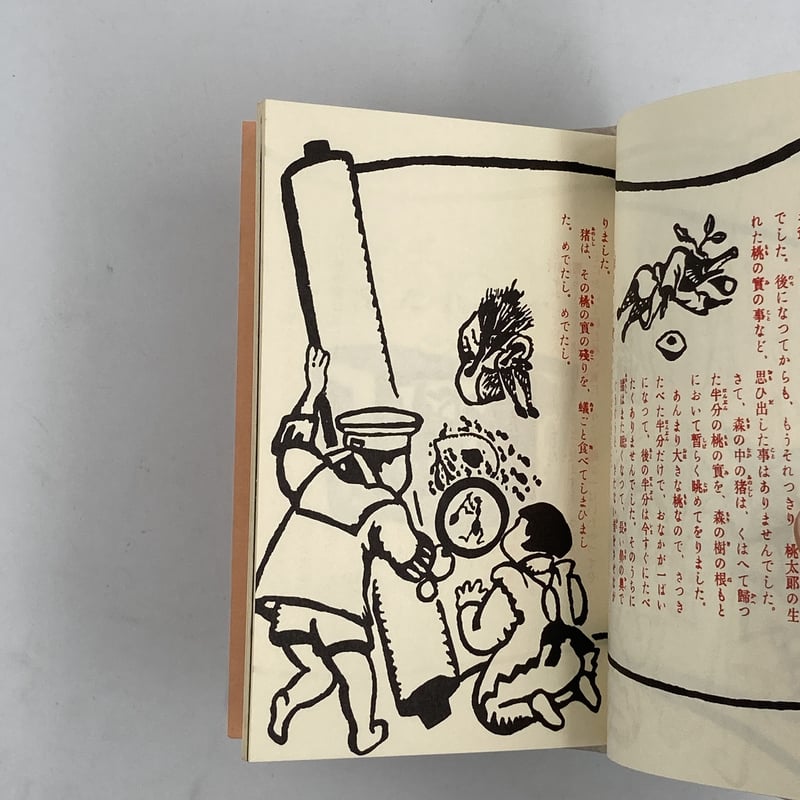 でした。後になつてからも、もうそれつきり桃太郎の生
れた桃の實の事など、思ひ出した事はありませんでした。
さて、森の中の猪は、くはへて歸つ
た半分の桃の實を、森の樹の根もと
において暫らく眺めてをりました。
あんまり大きな桃なので、さつき
たべた半分だけで、おなかが一ぱい
になつて、後の半分は今すぐにたべ
たくありませんでした。そのうちに
りました。
猪は、その桃の實の殘りを、蟻ごと食べてしまひまし
た。めでたし。めでたし。